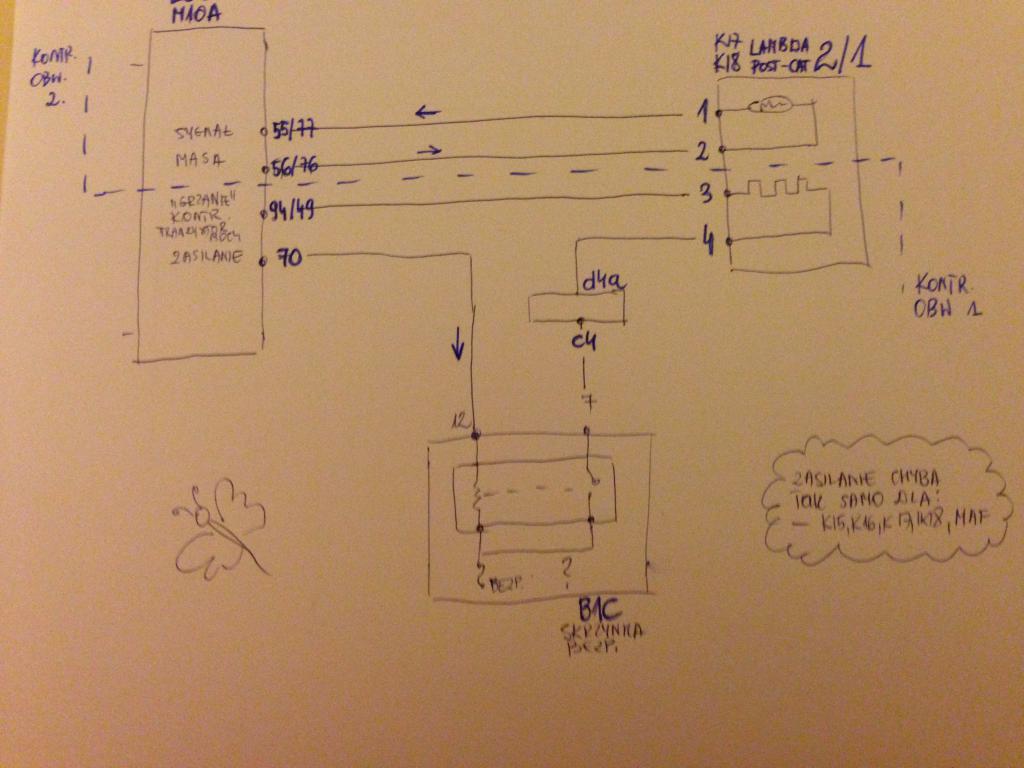 M10A
KONTR.
OBW.
2.
SYGNAŁ
55/77
MASA
56/76
"GRZANIE"
KONTR.
TRANZYSTOR
MOCY
94/49
ZASILANIE
70
K17
K18
LAMBDA
POST-CAT
2/1
1
2
3
4
KONTR.
OBW 1
d4a
c4
7
12
BEZP.
?
B1C
SKRZYNKA
BEZP.
ZASILANIE CHYBA
TAK SAMO DLA:
- K15, K16, K17, K18, MAF